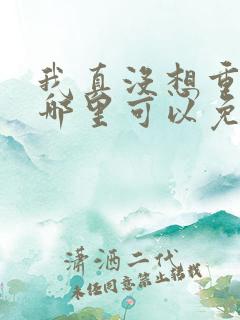 我真没想重
哪里可以免
潇洒二代
未经同意禁止转载